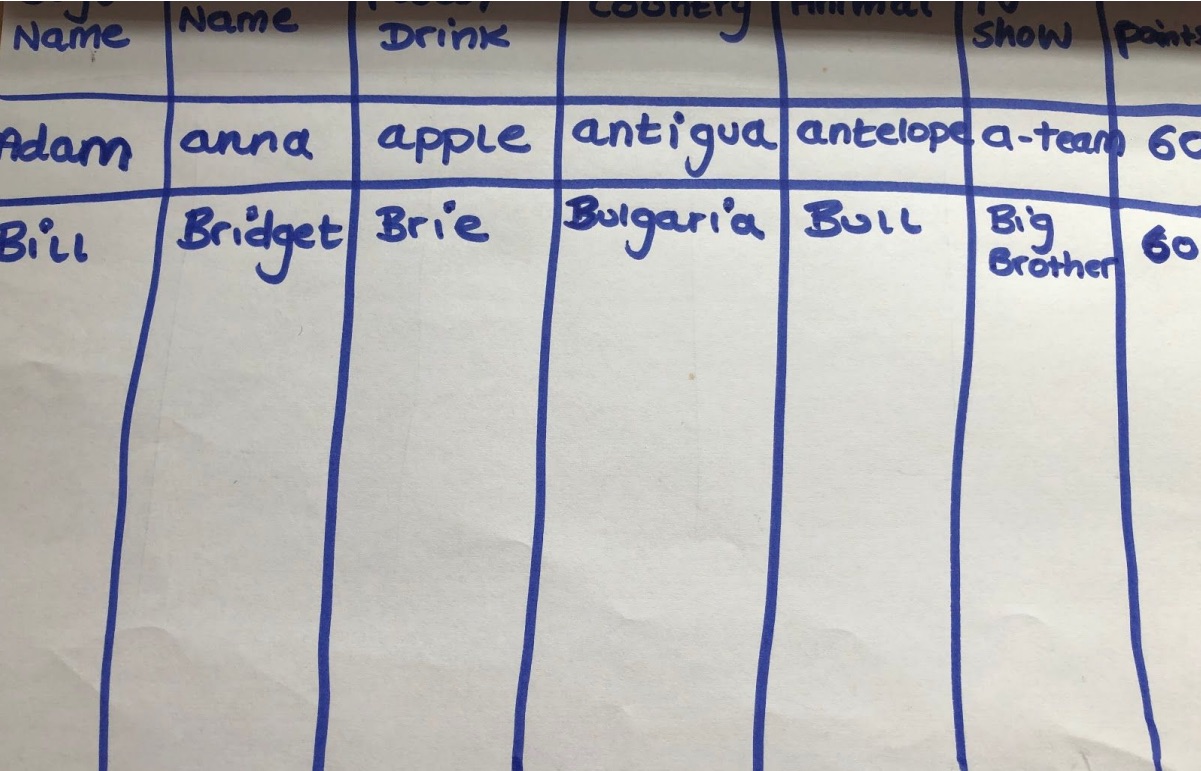 Name Name Drink Country Animal TV Show points
Adam anna apple antigua antelope a-team 60
Bill Bridget Brie Bulgaria Bull Big Brother 60